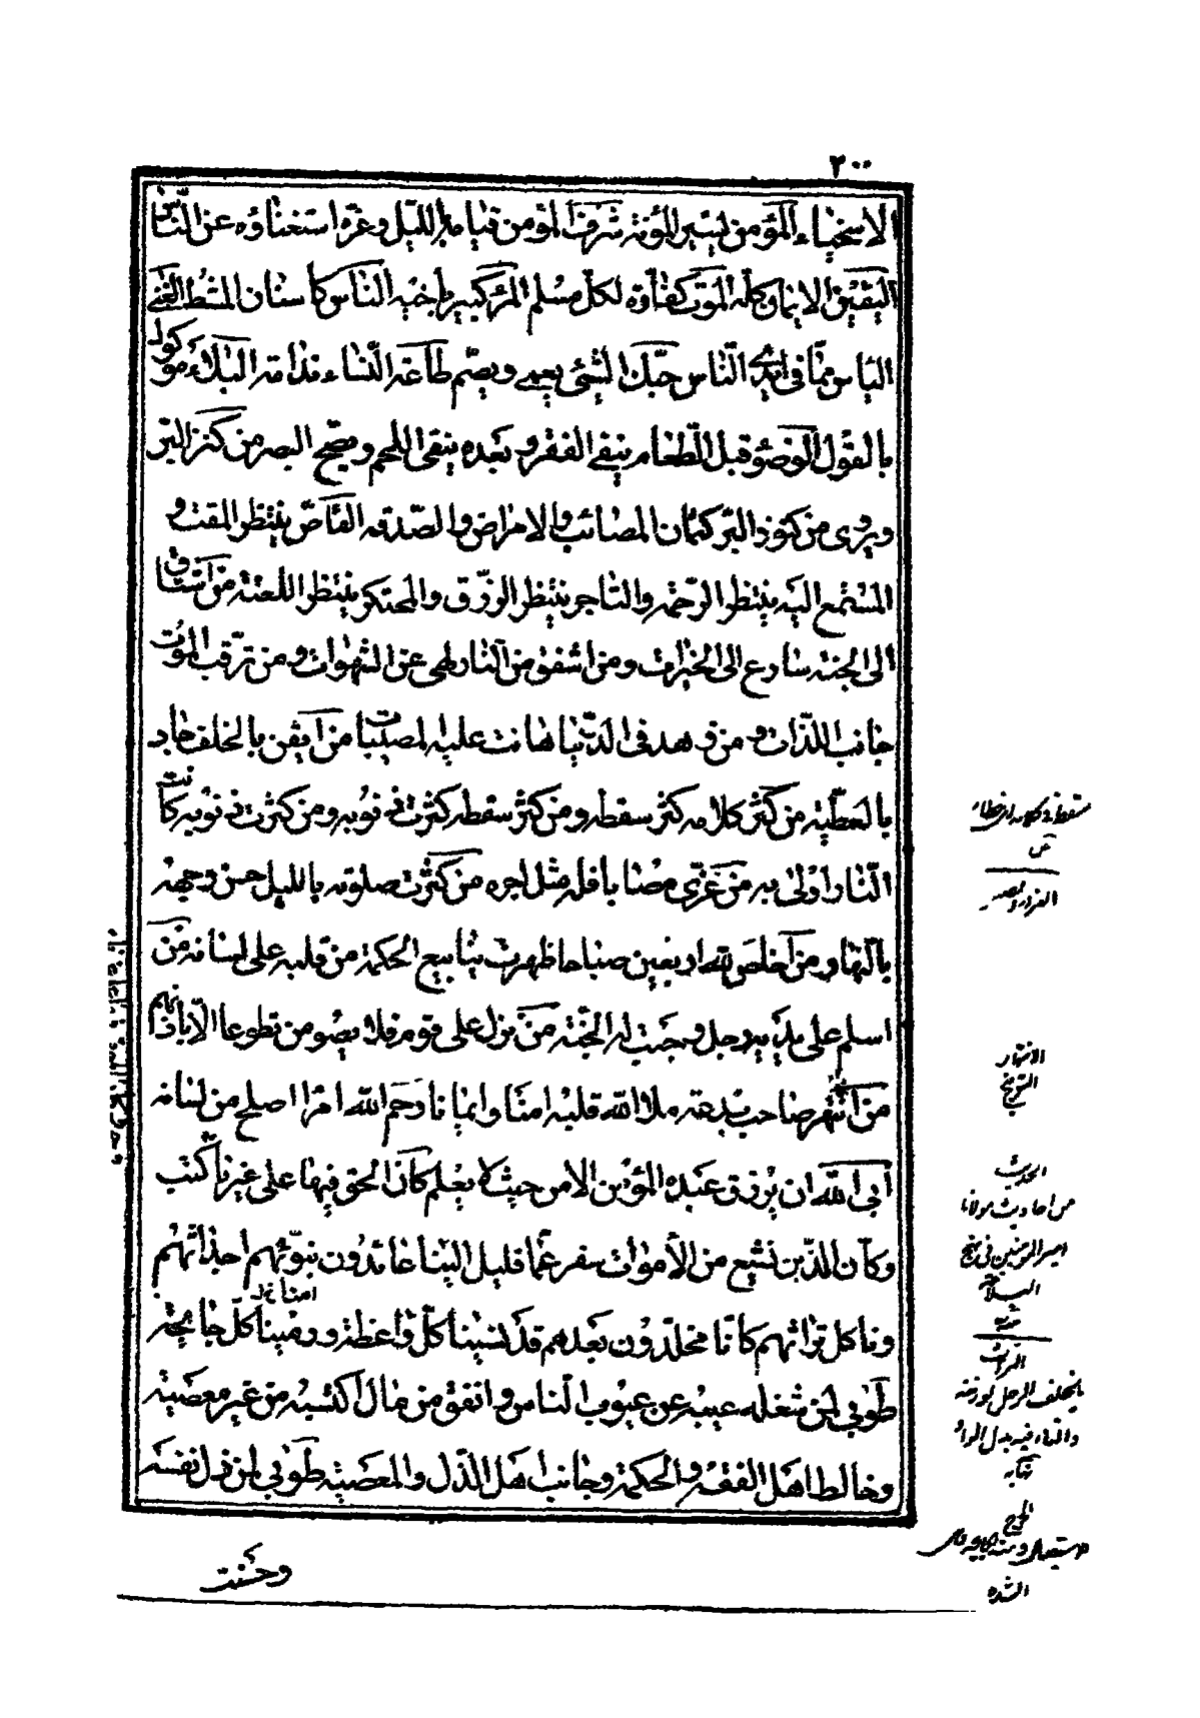 ٢٠٠
الاسخياء المؤمن يسير المؤنة شرف المؤمن قيامه بالليل وعزه استغناؤه عن الناس
اليقين الايمان كله الموت كفارة لكل مسلم المرء كثير باخيه الناس كاسنان المشط الغنى
الياس مما فى ايدى الناس حبك الشئ يعمى ويصم طاعة النساء ندامة البلاء موكول
بالقول الوضوء قبل الطعام ينفى الفقر وبعده ينفى اللمم ويصح البصر من كنز البر
ويروى من كنوز البر كتمان المصائب والامراض والصدقة القاص ينتظر المقت و
المستمع اليه ينتظر الرحمة والتاجر ينتظر الرزق والمحتكر ينتظر اللعنة من اشتاق
الى الجنة سارع الى الخيرات ومن اشفق من النار لهى عن الشهوات ومن ترقب الموت
جانب اللذات ومن زهد فى الدنيا هانت عليه المصيبات من ايقن بالخلف جاد
بالعطية من كثر كلامه كثر سقطه ومن كثر سقطه كثرت ذنوبه ومن كثرت ذنوبه كانت
النار اولى به من عزى مصابا فله مثل اجره من كثرت صلوته بالليل حسن وجهه
بالنهار من اخلص لله اربعين صباحا ظهرت ينابيع الحكمة من قلبه على لسانه من
اسلم على يديه رجل وجبت له الجنة من نزل على قوم فلا يصومن تطوعا الا باذنهم
من انتهر صاحب بدعة ملا الله قلبه امنا وايمانا رحم الله امرا اصلح من لسانه
ابى الله ان يرزق عبده المؤمن الا من حيث لا يعلم كان الحق فيها على غيرنا كتب
وكان الذين نشيع من الاموات سفر عما قليل الينا عائدون نبوئهم اجداثهم
وناكل تراثهم كانا مخلدون بعدهم قد نسينا كل واعظة ورمينا كل جائحة
امنا خل
طوبى لمن شغله عيبه عن عيوب الناس وانفق من مال اكتسبه من غير معصية
وخالط اهل الفقه والحكمة وجانب اهل الذل والمعصية طوبى لمن ذل نفسه
وحسنت
الانتهار
الحديث
من احاديث مولانا
امير المؤمنين فى نهج
البلاغة
التراث
ما يخلفه الرجل لورثته
والتاء فيه بدل الواو
نهاية
الشدة